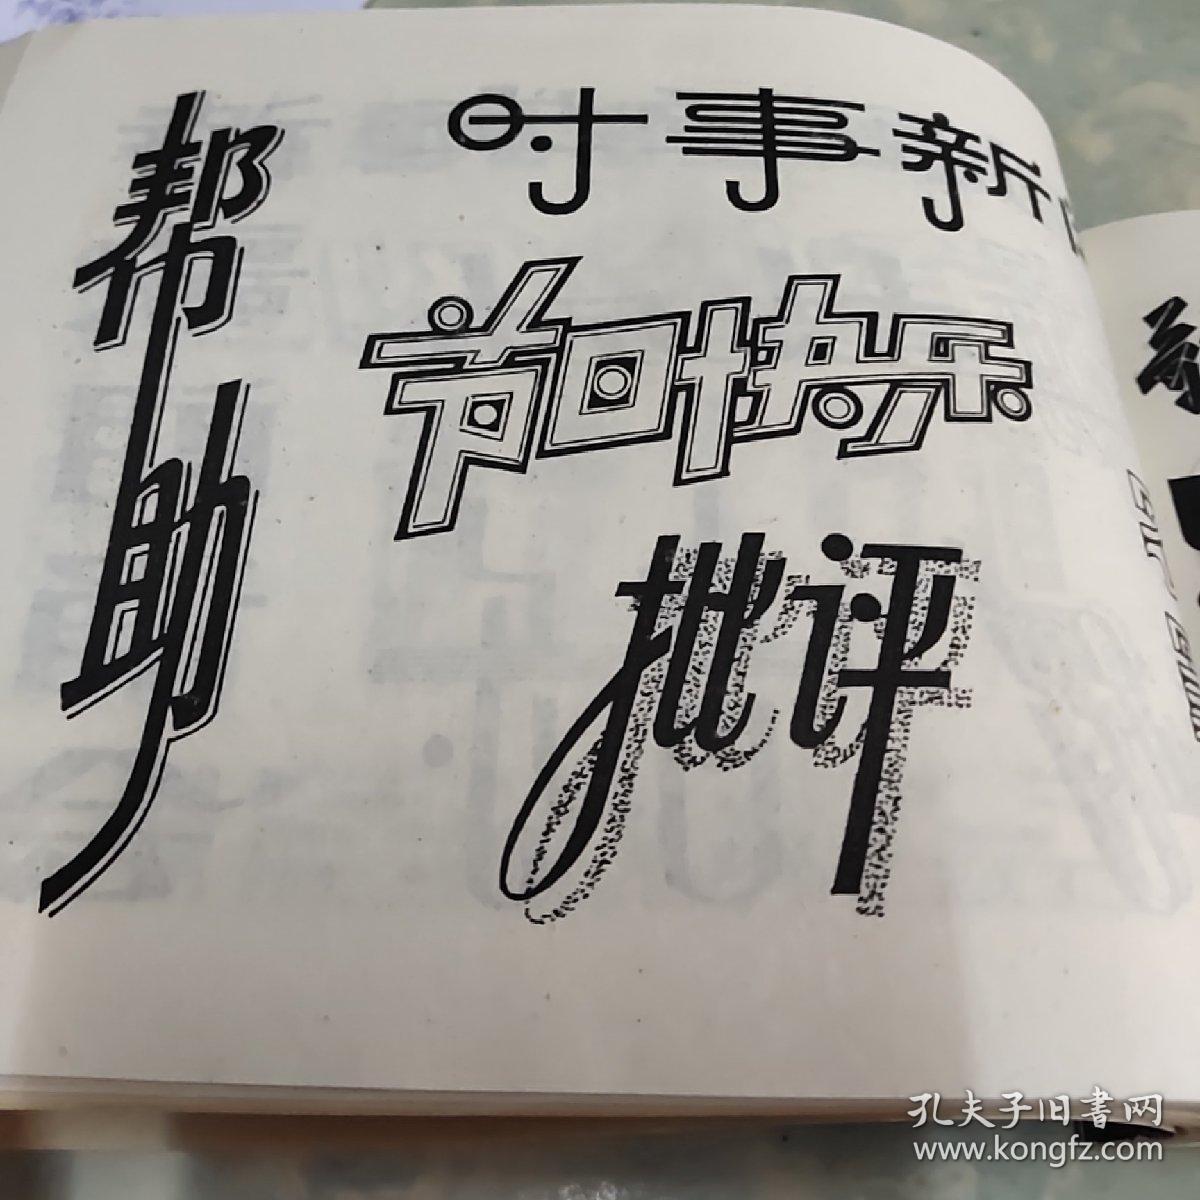 帮助
时事新
节日快乐
批评
孔夫子旧書网
www.kongfz.com